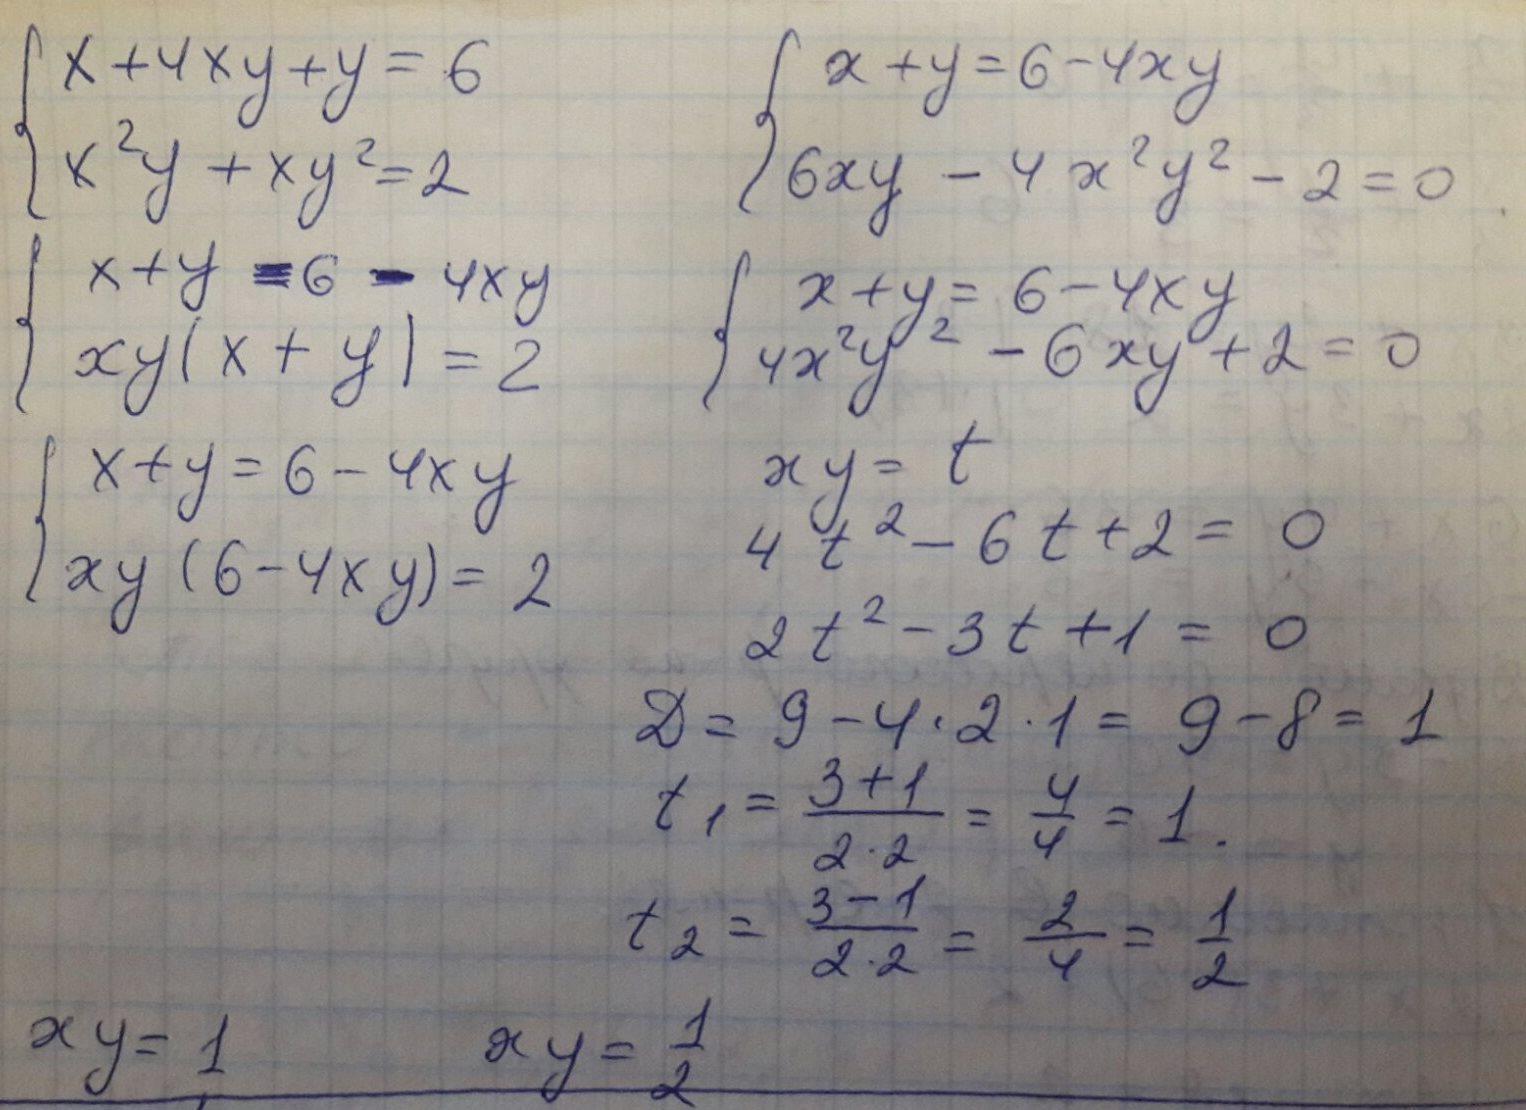 x + 4xy + y = 6
x²y + xy² = 2
x + y = 6 - 4xy
xy(x + y) = 2
x + y = 6 - 4xy
xy(6 - 4xy) = 2
x + y = 6 - 4xy
6xy - 4x²y² - 2 = 0
x + y = 6 - 4xy
4x²y² - 6xy + 2 = 0
xy = t
4t² - 6t + 2 = 0
2t² - 3t + 1 = 0
D = 9 - 4·2·1 = 9 - 8 = 1
t₁ = (3+1)/(2·2) = 4/4 = 1.
t₂ = (3-1)/(2·2) = 2/4 = 1/2
xy = 1 xy = 1/2